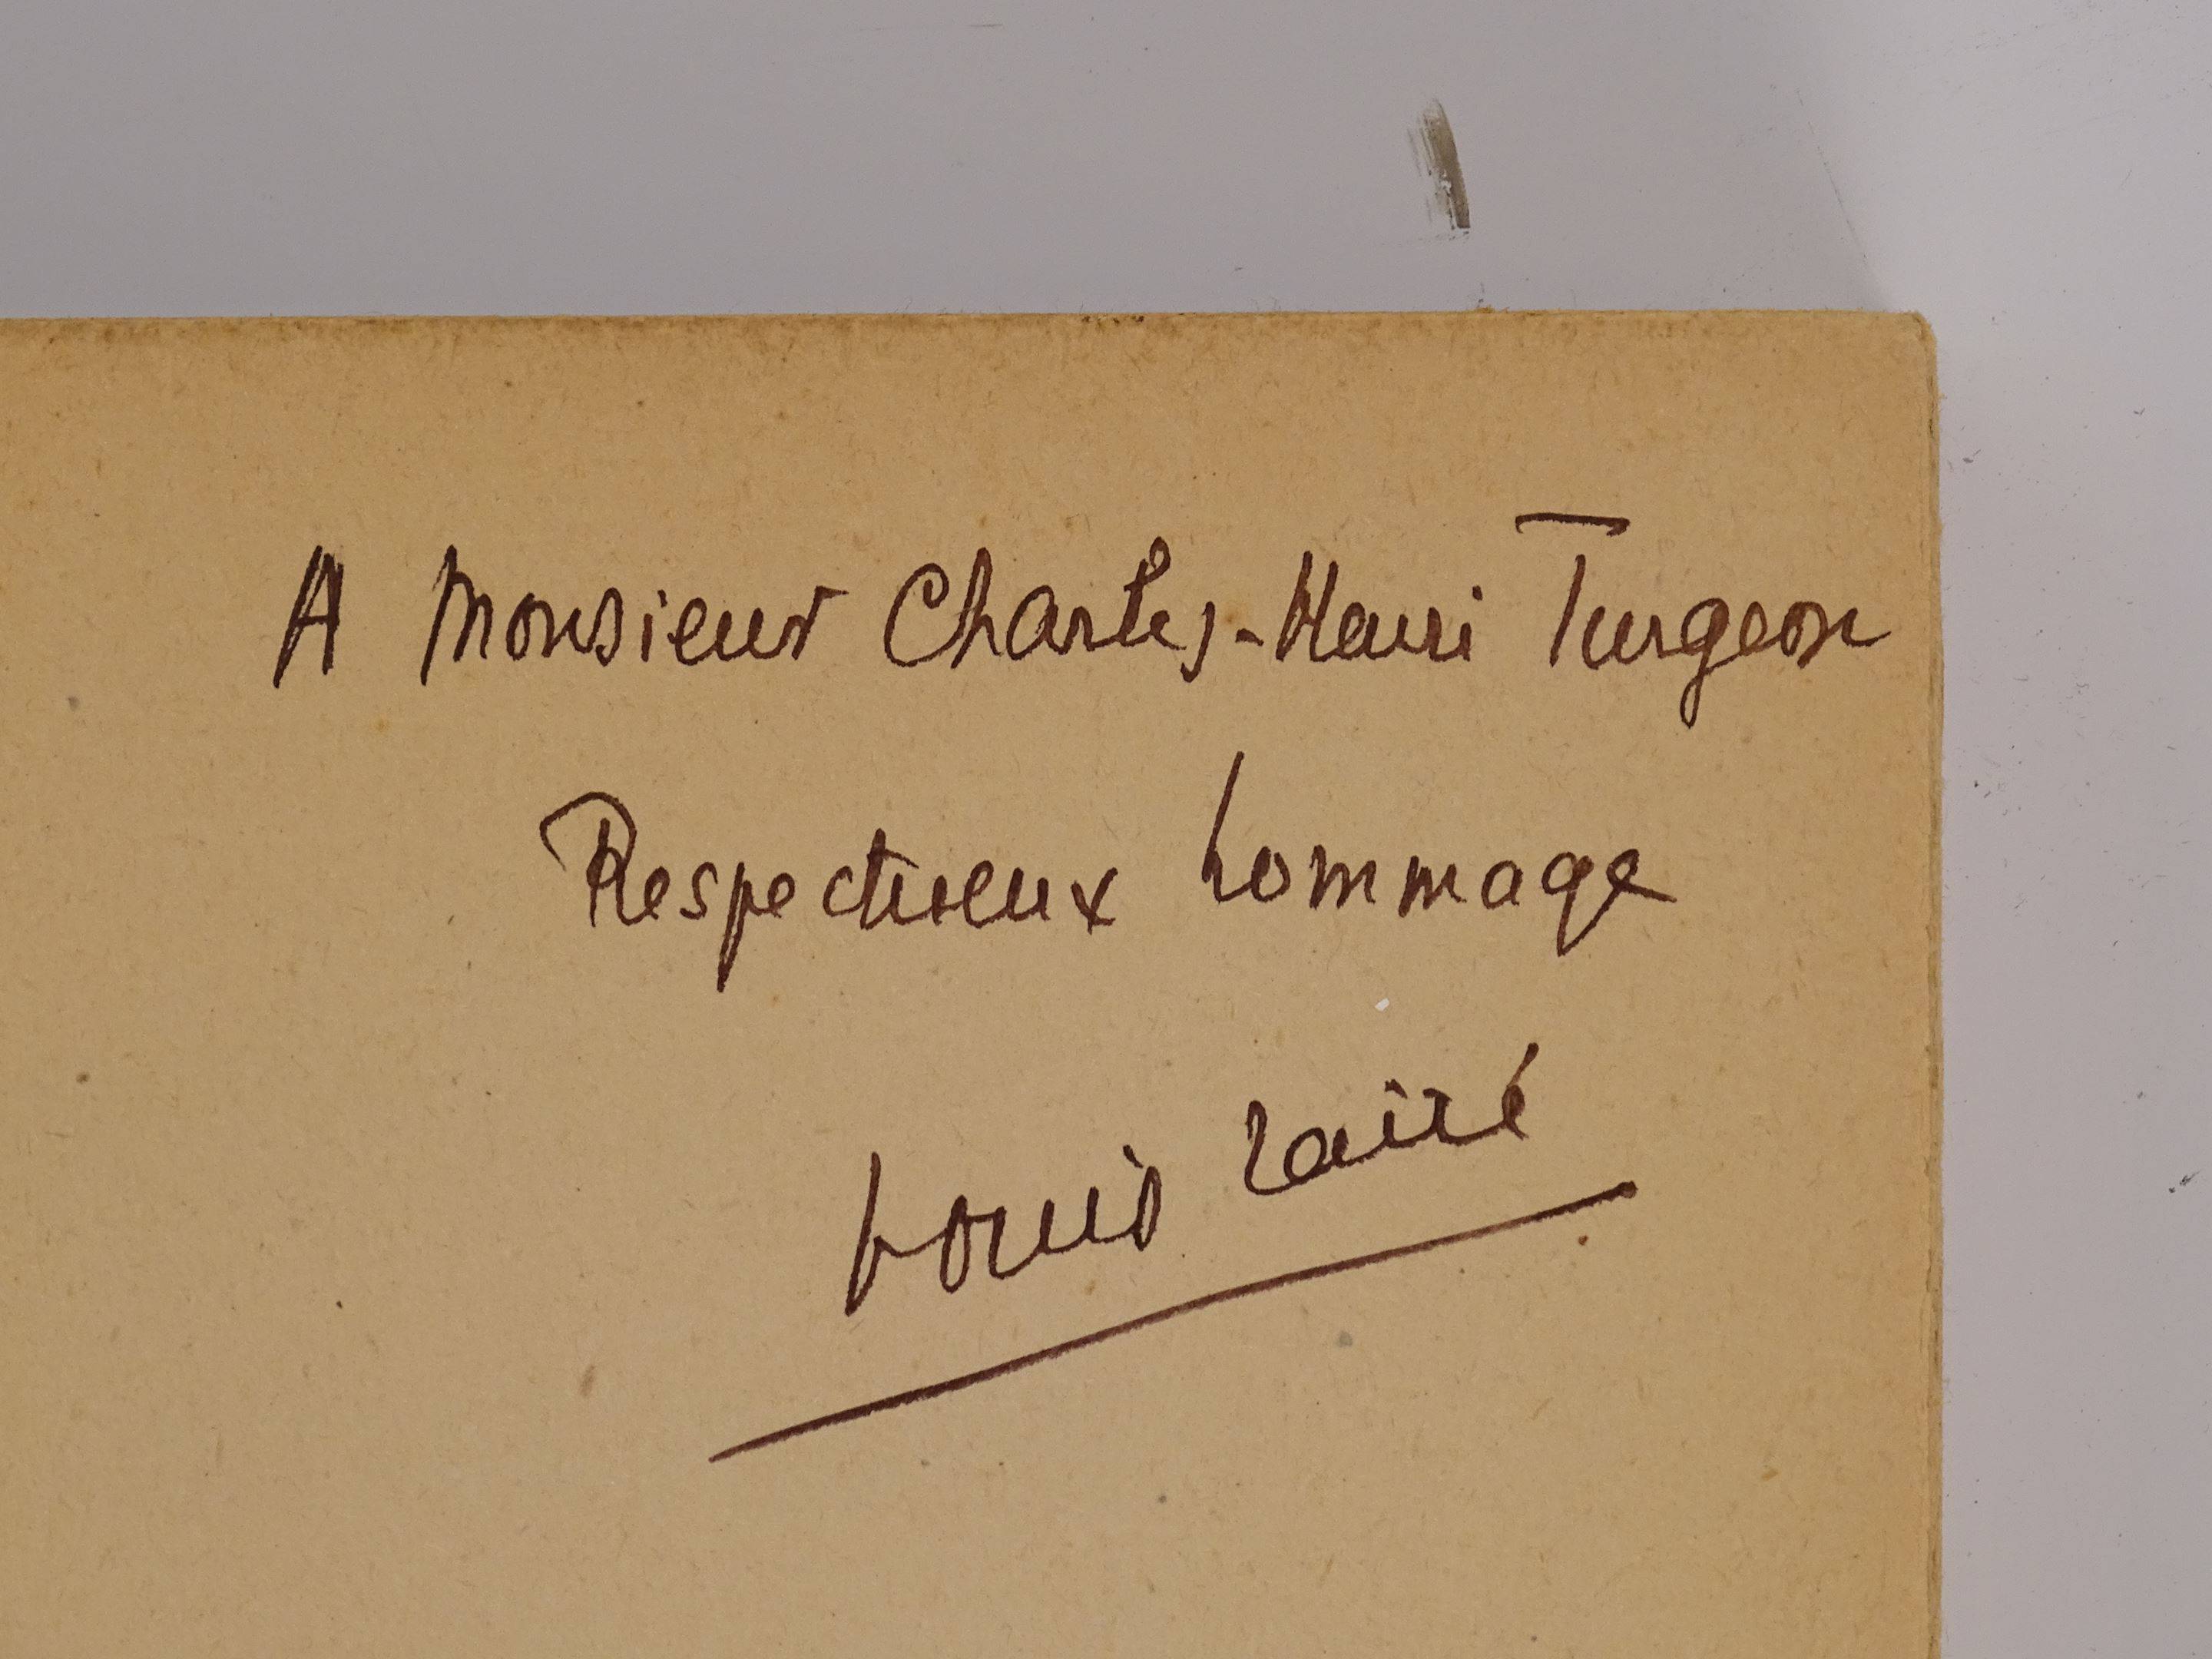 A Monsieur Charles-Henri Turgeon
Respectueux hommage
Louis